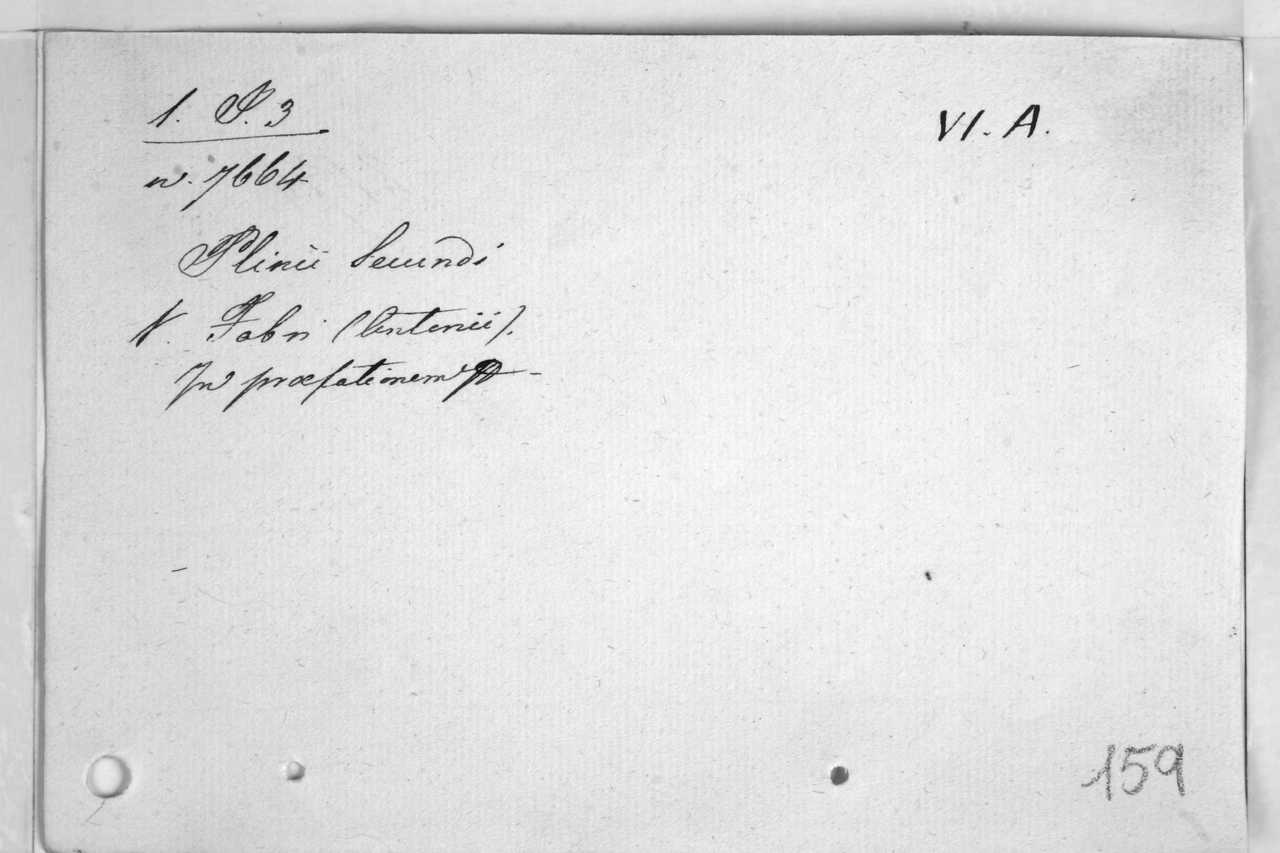 1. P. 3
VI. A.
n. 7664
Plinii Secundi
V. Fabri (Antonii).
In præfationem P –
159